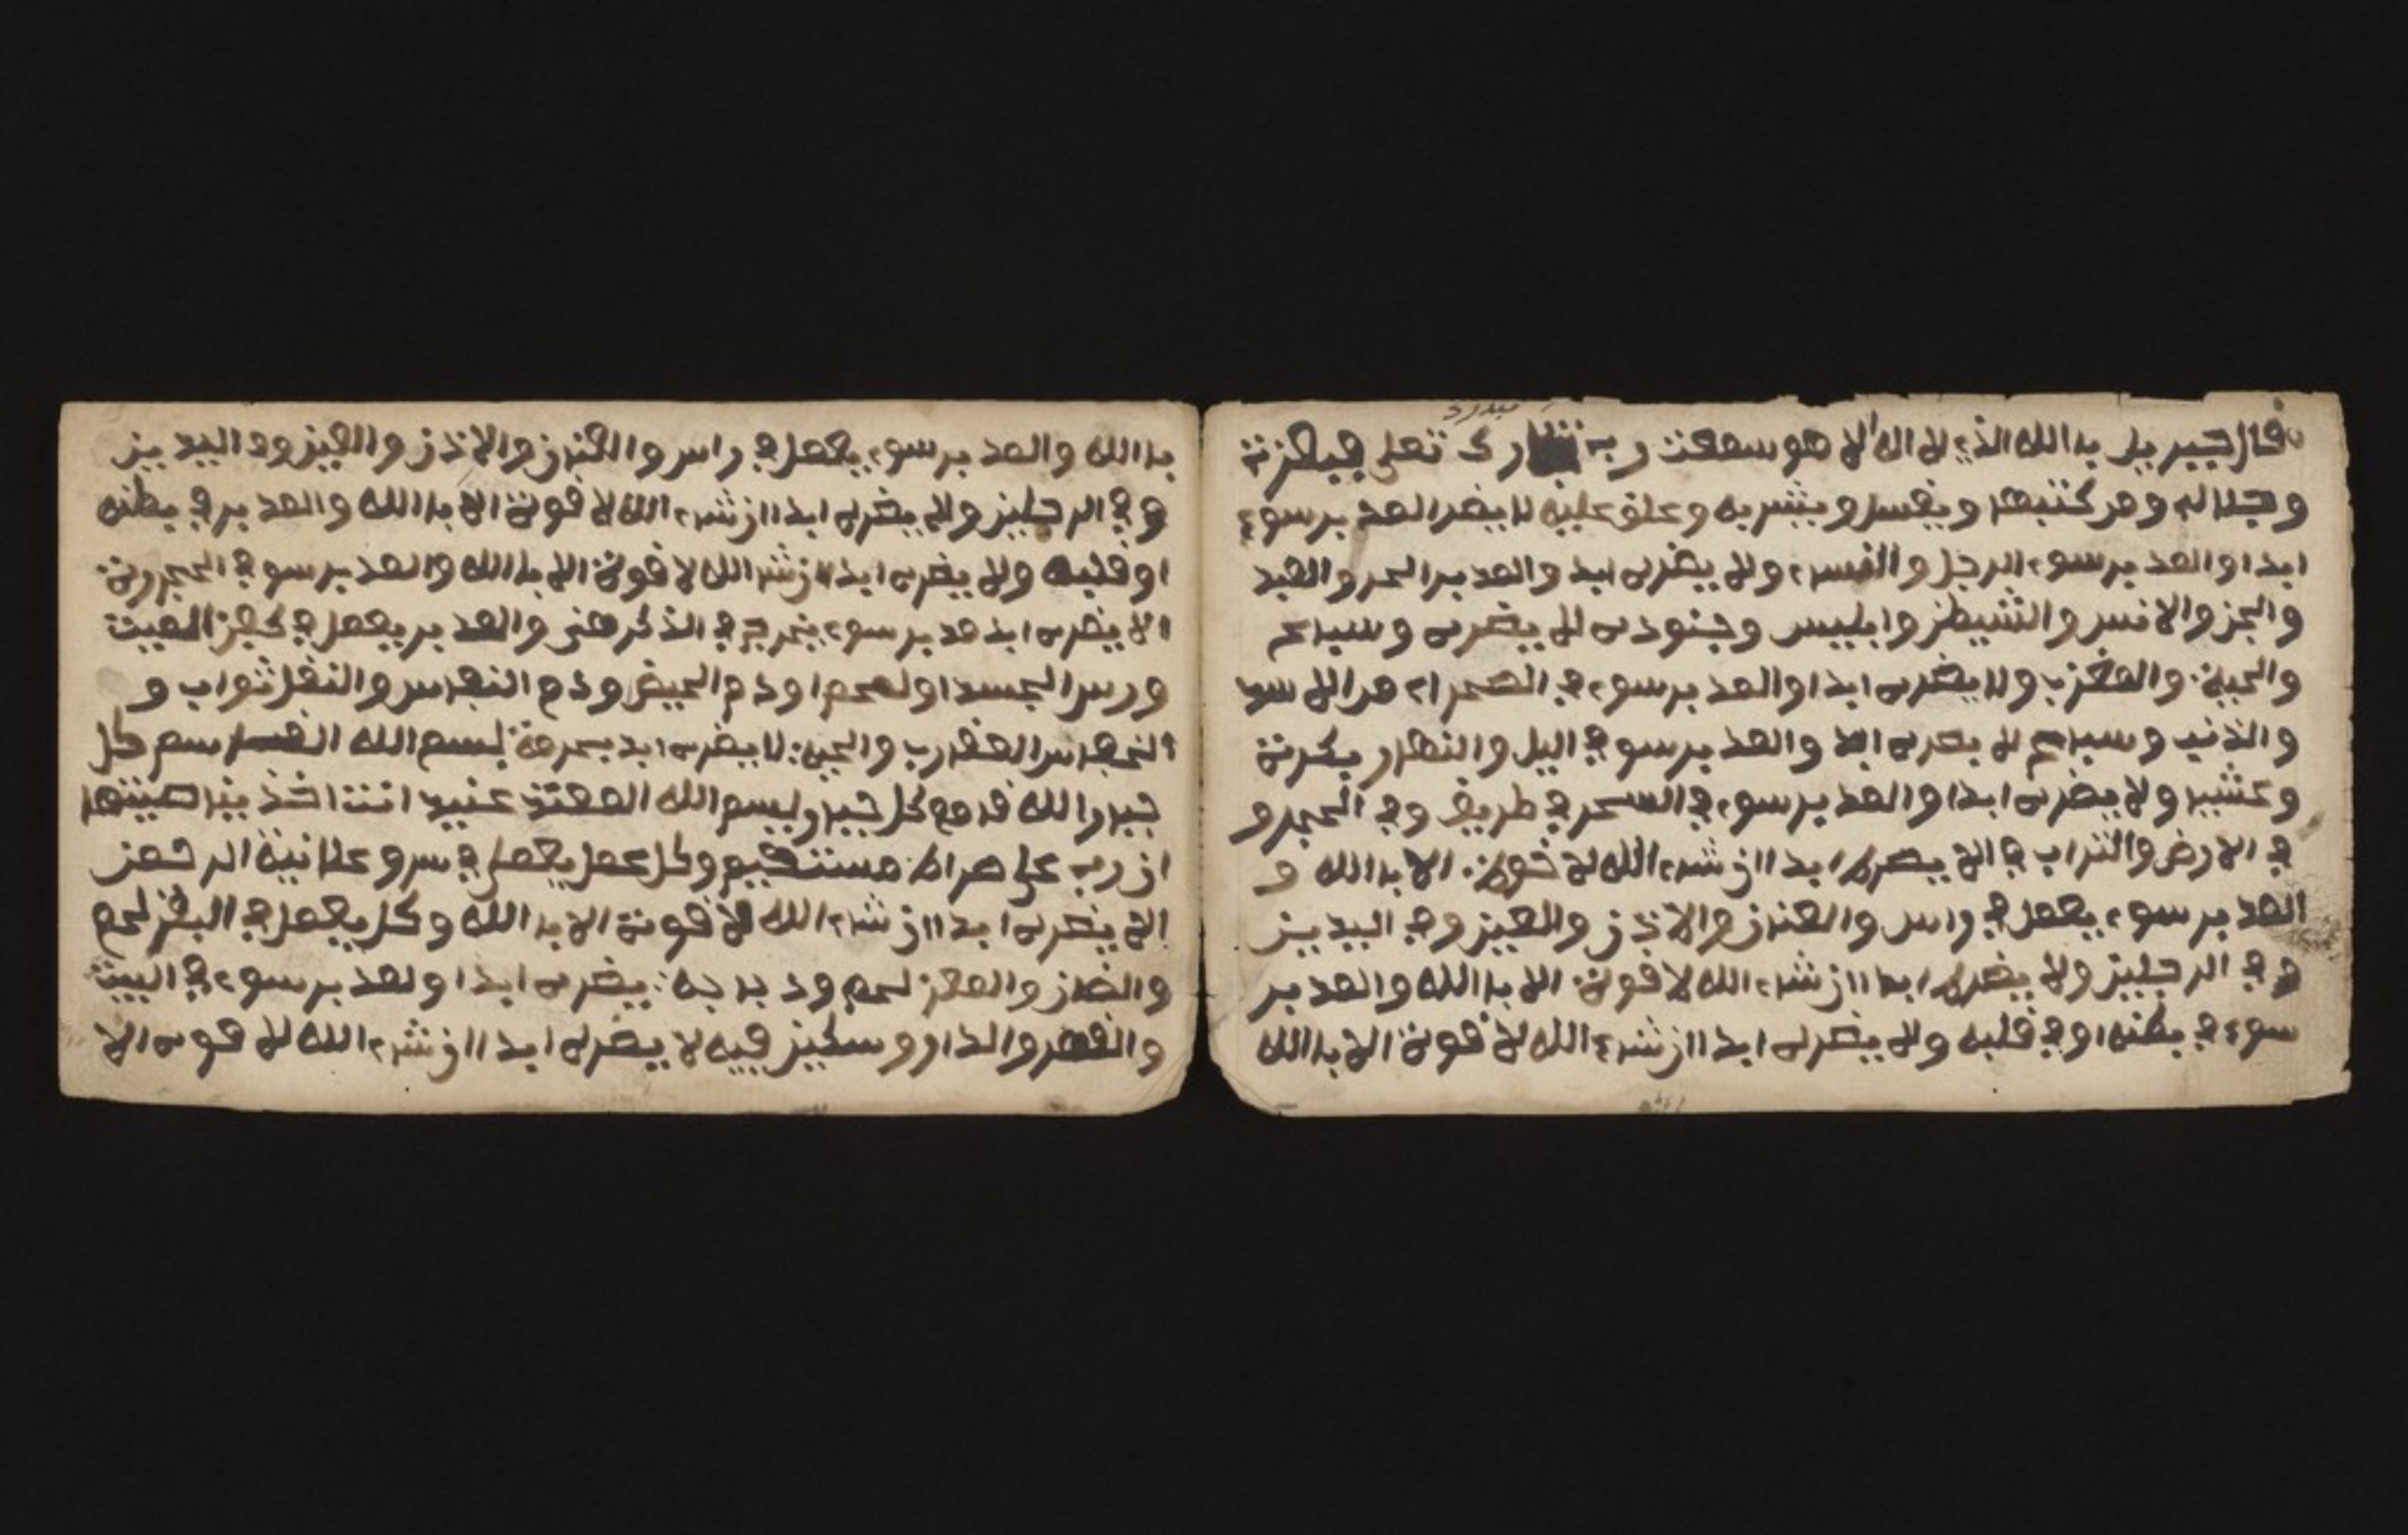 قال جبريل بالله الذي لا اله الا هو سمعت رب تبارك تعلى
وجلاله ومر كتبها ويغسل ويشربه وعلق عليه لا يضر العد برسوء
ابدا والعد برسوء الرجل والنسء ولا يضره ابد والعد بر الحر والعبد
والجن والانس والشيطن وابليس وجنوده لا يضره وسباع
والحية والعفرب ولا يضره ابدا والعد برسوء في الصحراء
والذئب وسباع لا يضره ابدا والعد برسو في اليل والنهار بكرة
وعشيا ولا يضره ابدا والعد برسوء في السحر في طريق وفي
في الارض والتراب لا يضره ابدا ان شء الله لا قوة الا بالله و
العد برسوء يعمل في راس والعين والاذن والعين وفي اليدين
وفي الرجلين ولا يضره ابدا ان شء الله لا قوة الا بالله والعد بر
سوء في بطنه او في قلبه ولا يضره ابدا ان شء الله لا قوة الا بالله
بالله والعد برسوء يعمل في راس والاذن والعين ود اليدين
وفي الرجلين ولا يضره ابدا ان شء الله لا قوة الا بالله والعد بر في بطنه
او قلبه ولا يضره ابدا ان شء الله لا قوة الا بالله والعد برسو في
الا يضره ابد عد برسوء يخرج في الذكر والعد بر يعمل في كفن الميت
وراس الجسد او لحم او دم الحيض ودم النفاس والنفل تواب و
العفارب والحية لا يضره ابد بحرمة بسم الله سم كل
جبروا لله كل جبر وبسم الله عنيد انت اخذ بناصيتها
ان رب على صراط مستقيم وكل عمل يعمل في سر وعلانية الرحمن
لا يضره ابدا ان شء الله لا قوة الا بالله وكل يعمل في البقر لحم
والضان والمعز لحم ود يضره ابدا ولعد برسوء في البيت
والدار فيه لا يضره ابدا ان شء الله لا قوة الا